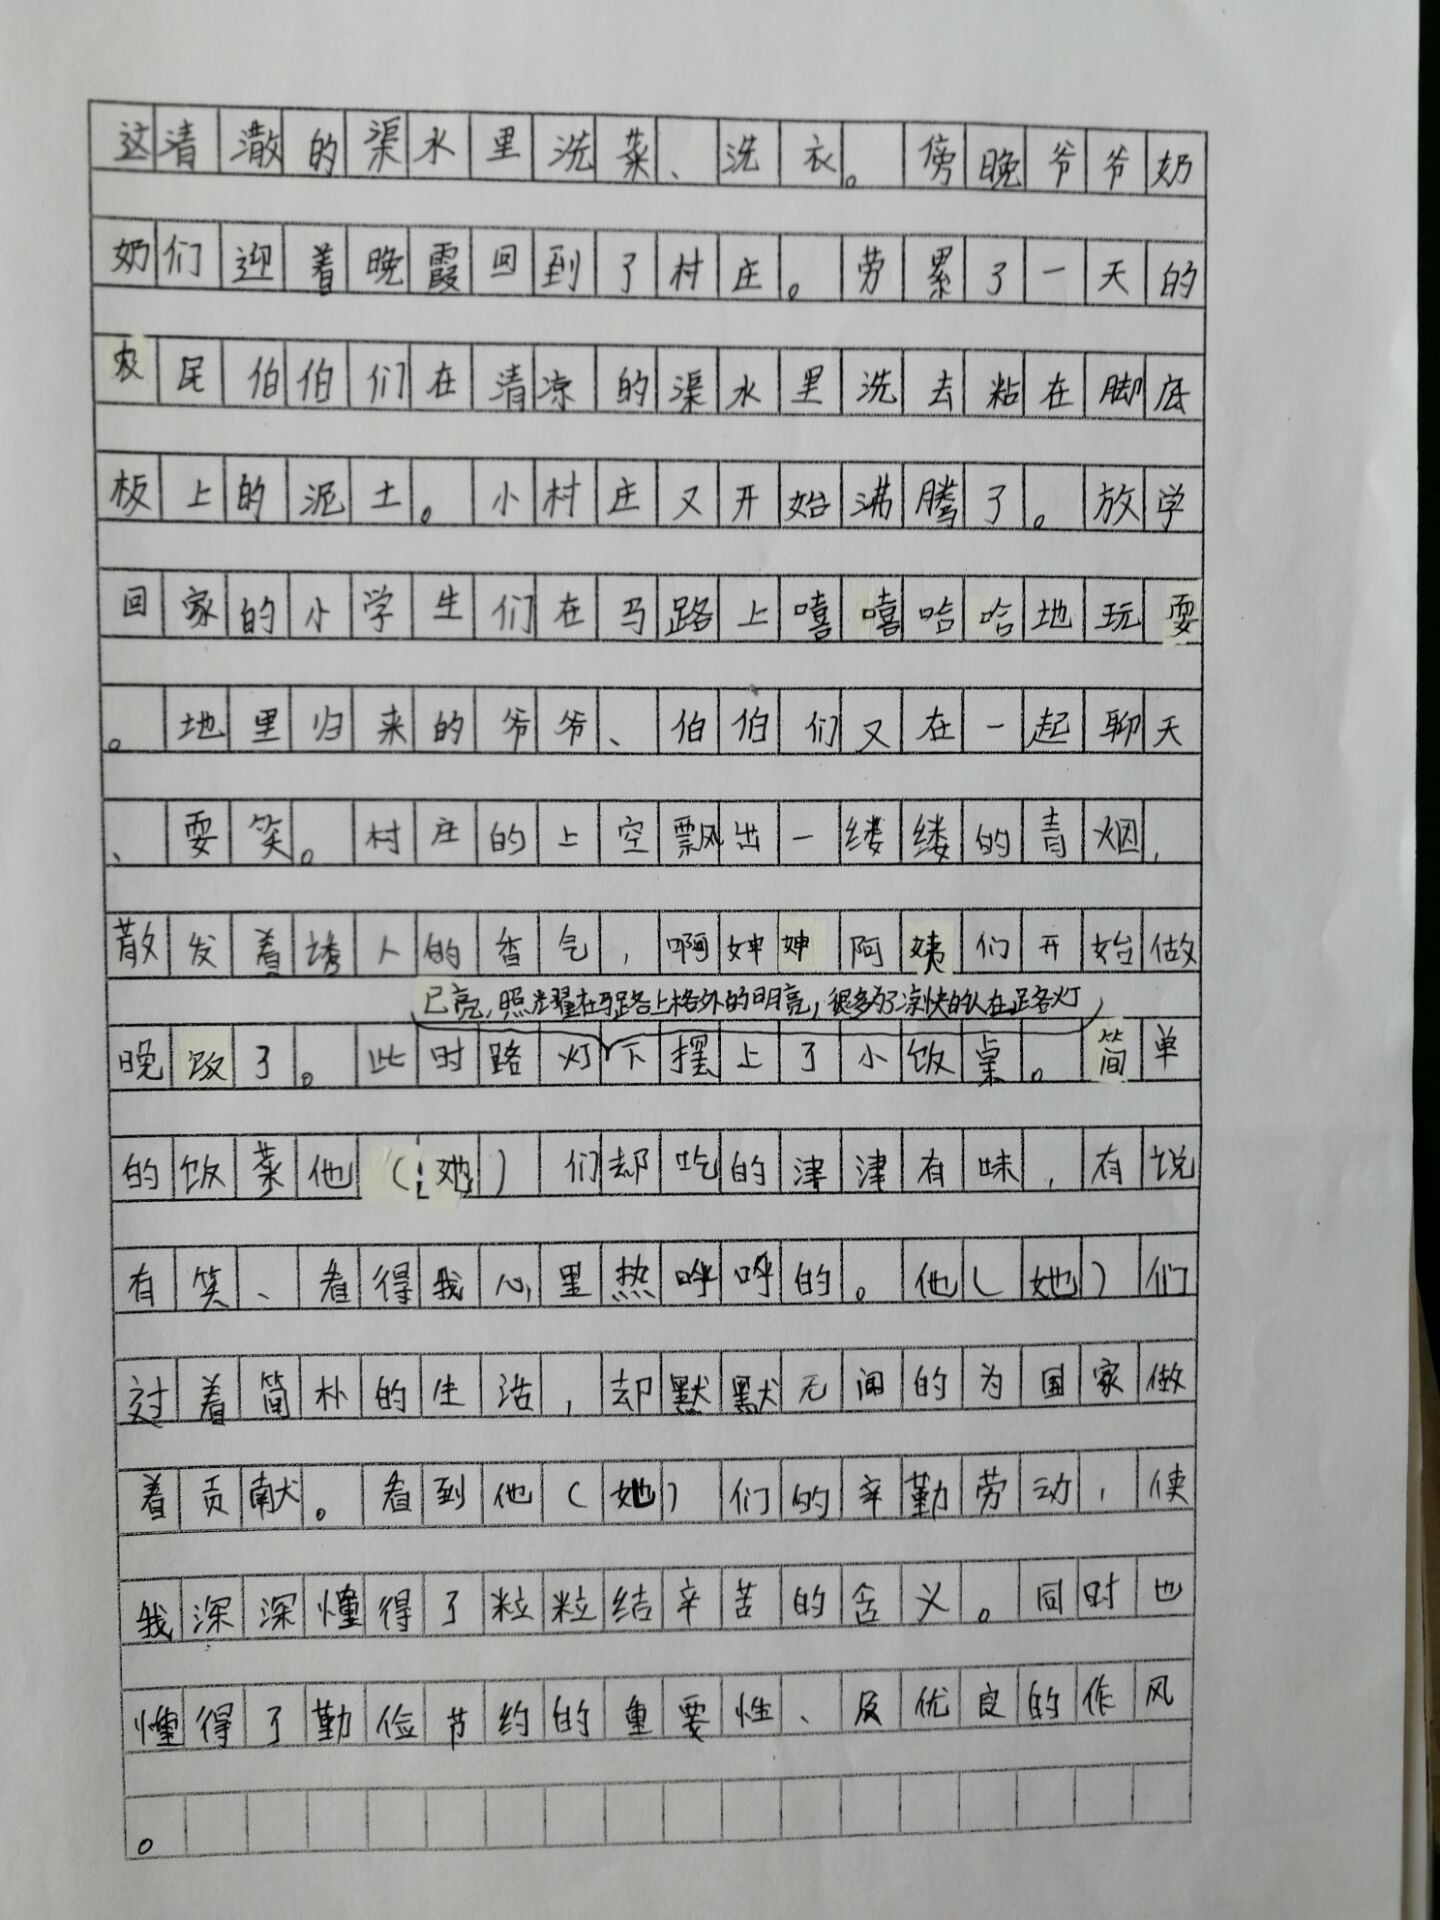 这清澈的渠水里洗菜、洗衣。傍晚爷爷奶
奶们迎着晚霞回到了村庄。劳累了一天的
农民伯伯们在清凉的渠水里洗去粘在脚底
板上的泥土。小村庄又开始沸腾了。放学
回家的小学生们在马路上嘻嘻哈哈地玩耍
。地里归来的爷爷、伯伯们又在一起聊天
、耍笑。村庄的上空飘出一缕缕的青烟，
散发着诱人的香气，啊婶婶阿姨们开始做
已亮，照耀在马路上格外的明亮，很多为了凉快的人在路灯
晚饭了。此时路灯下摆上了小饭桌。简单
的饭菜他（她）们却吃的津津有味，有说
有笑、看得我心里热呼呼的。他（她）们
过着简朴的生活，却默默无闻的为国家做
着贡献。看到他（她）们的辛勤劳动，使
我深深懂得了粒粒结辛苦的含义。同时也
懂得了勤俭节约的重要性、及优良的作风
。